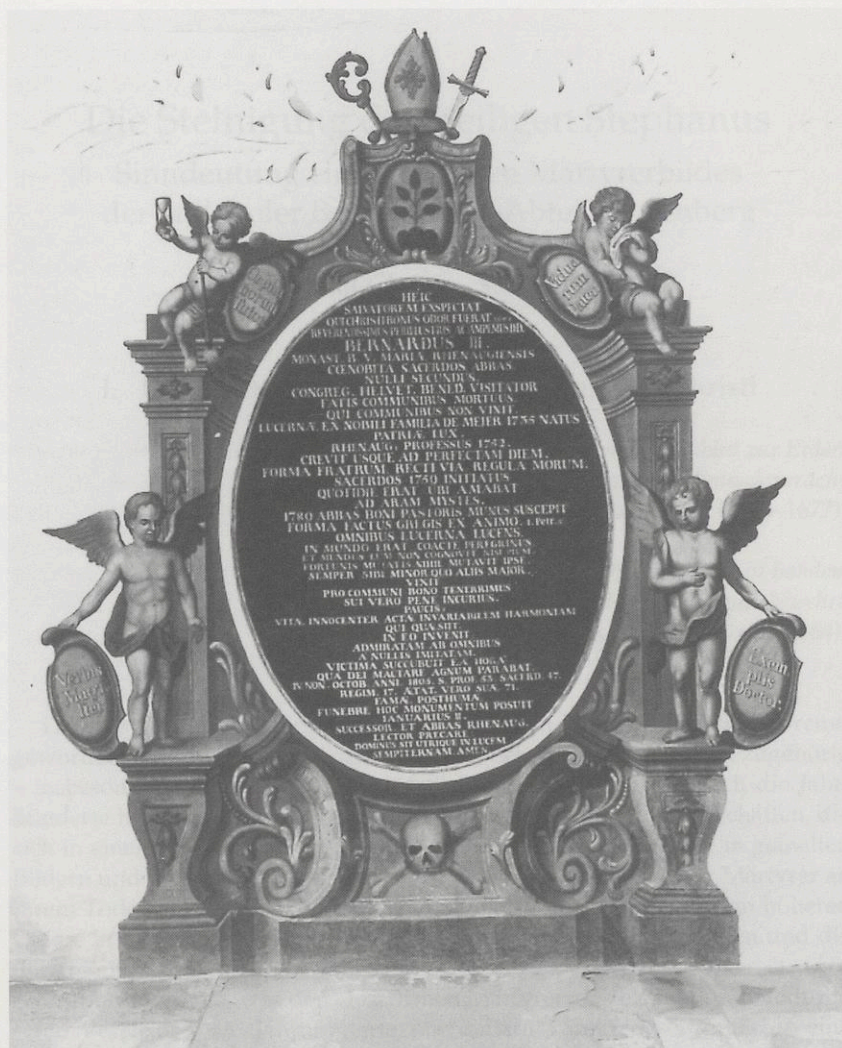 HEIC
SALVATOREM EXSPECTAT
QUI CHRISTI BONUS ODOR FUERAT
REVERENDISSIMUS PERILLUSTRIS AC AMPLISSIMUS D.D.
BERNARDUS III.
MONAST. B. V. MARIÆ RHENAUGIENSIS
CŒNOBITA SACERDOS ABBAS.
NULLI SECUNDUS.
CONGREG. HELVET. BENED. VISITATOR
FATIS COMMUNIBUS MORTUUS.
QUI COMMUNIBUS NON VIXIT.
LUCERNÆ EX NOBILI FAMILIA DE MEJER 1735 NATUS
PATRIÆ LUX.
RHENAUG. PROFESSUS 1752.
CREVIT USQUE AD PERFECTAM DIEM.
FORMA FRATRUM, RECTI VIA, REGULA MORUM.
SACERDOS 1759 INITIATUS
QUOTIDIE ERAT UBI AMABAT
AD ARAM MYSTES.
1789 ABBAS BONI PASTORIS MUNUS SUSCEPIT
FORMA FACTUS GREGIS EX ANIMO. 1. Petr. 5
OMNIBUS LUCERNA LUCENS.
IN MUNDO ERAT COACTE PEREGRINUS
ET MUNDUS EUM NON COGNOVIT NISI PIUM.
FORTUNIS MUTATIS NIHIL MUTAVIT IPSE.
SEMPER SIBI MINOR QUO ALIIS MAJOR.
VIXIT
PRO COMMUNI BONO TENERRIMUS
SUI VERO PENE INCURIUS.
PAUCIS:
VITÆ INNOCENTER ACTÆ INVARIABILEM HARMONIAM
QUI QUÆSIIT.
IN EO INVENIT
ADMIRATAM AB OMNIBUS
A NULLIS IMITATAM.
VICTIMA SUCCUBUIT EA HORA
QUA DEI MACTARE AGNUM PARABAT.
IV NON. OCTOB. ANNI 1805. S. PROF. 53. SACERD. 47.
REGIM. 17. ÆTAT. VERO SUÆ 71.
FAMÆ POSTHUMÆ
FUNEBRE HOC MONUMENTUM POSUIT
IANUARIUS II.
SUCCESSOR ET ABBAS RHENAUG.
LECTOR PRECARE
DOMINUS SIT UTRIQUE IN LUCEM
SEMPITERNAM AMEN.
Vidua
rum
Verbis
Exem
plis
Doctor